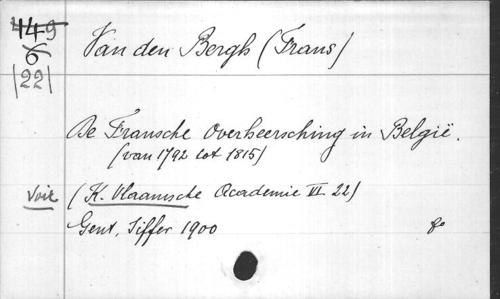 449
6
|22|
Van den Bergh (Frans)
De Fransche Overheersching in België.
(van 1792 tot 1815)
Voir (K. Vlaamsche Academie VI. 22)
Gent, Siffer 1900 8o